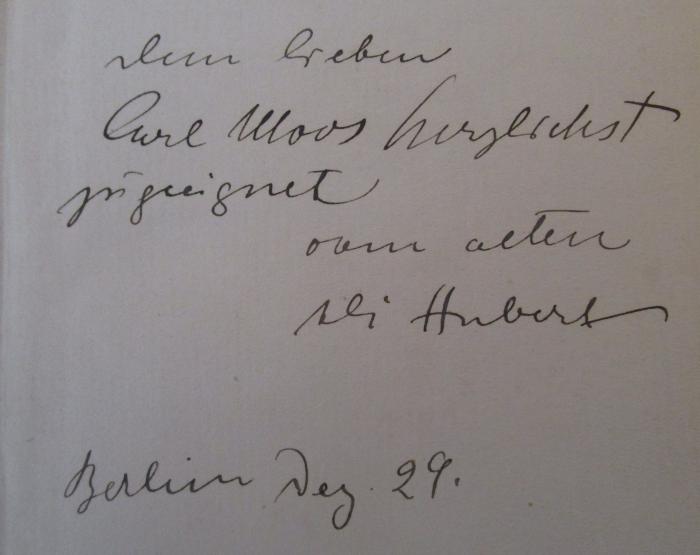 Dem lieben
Carl Moos herzlichst
zugeeignet
vom alten
Ali Hubert
Berlin Dez. 29.